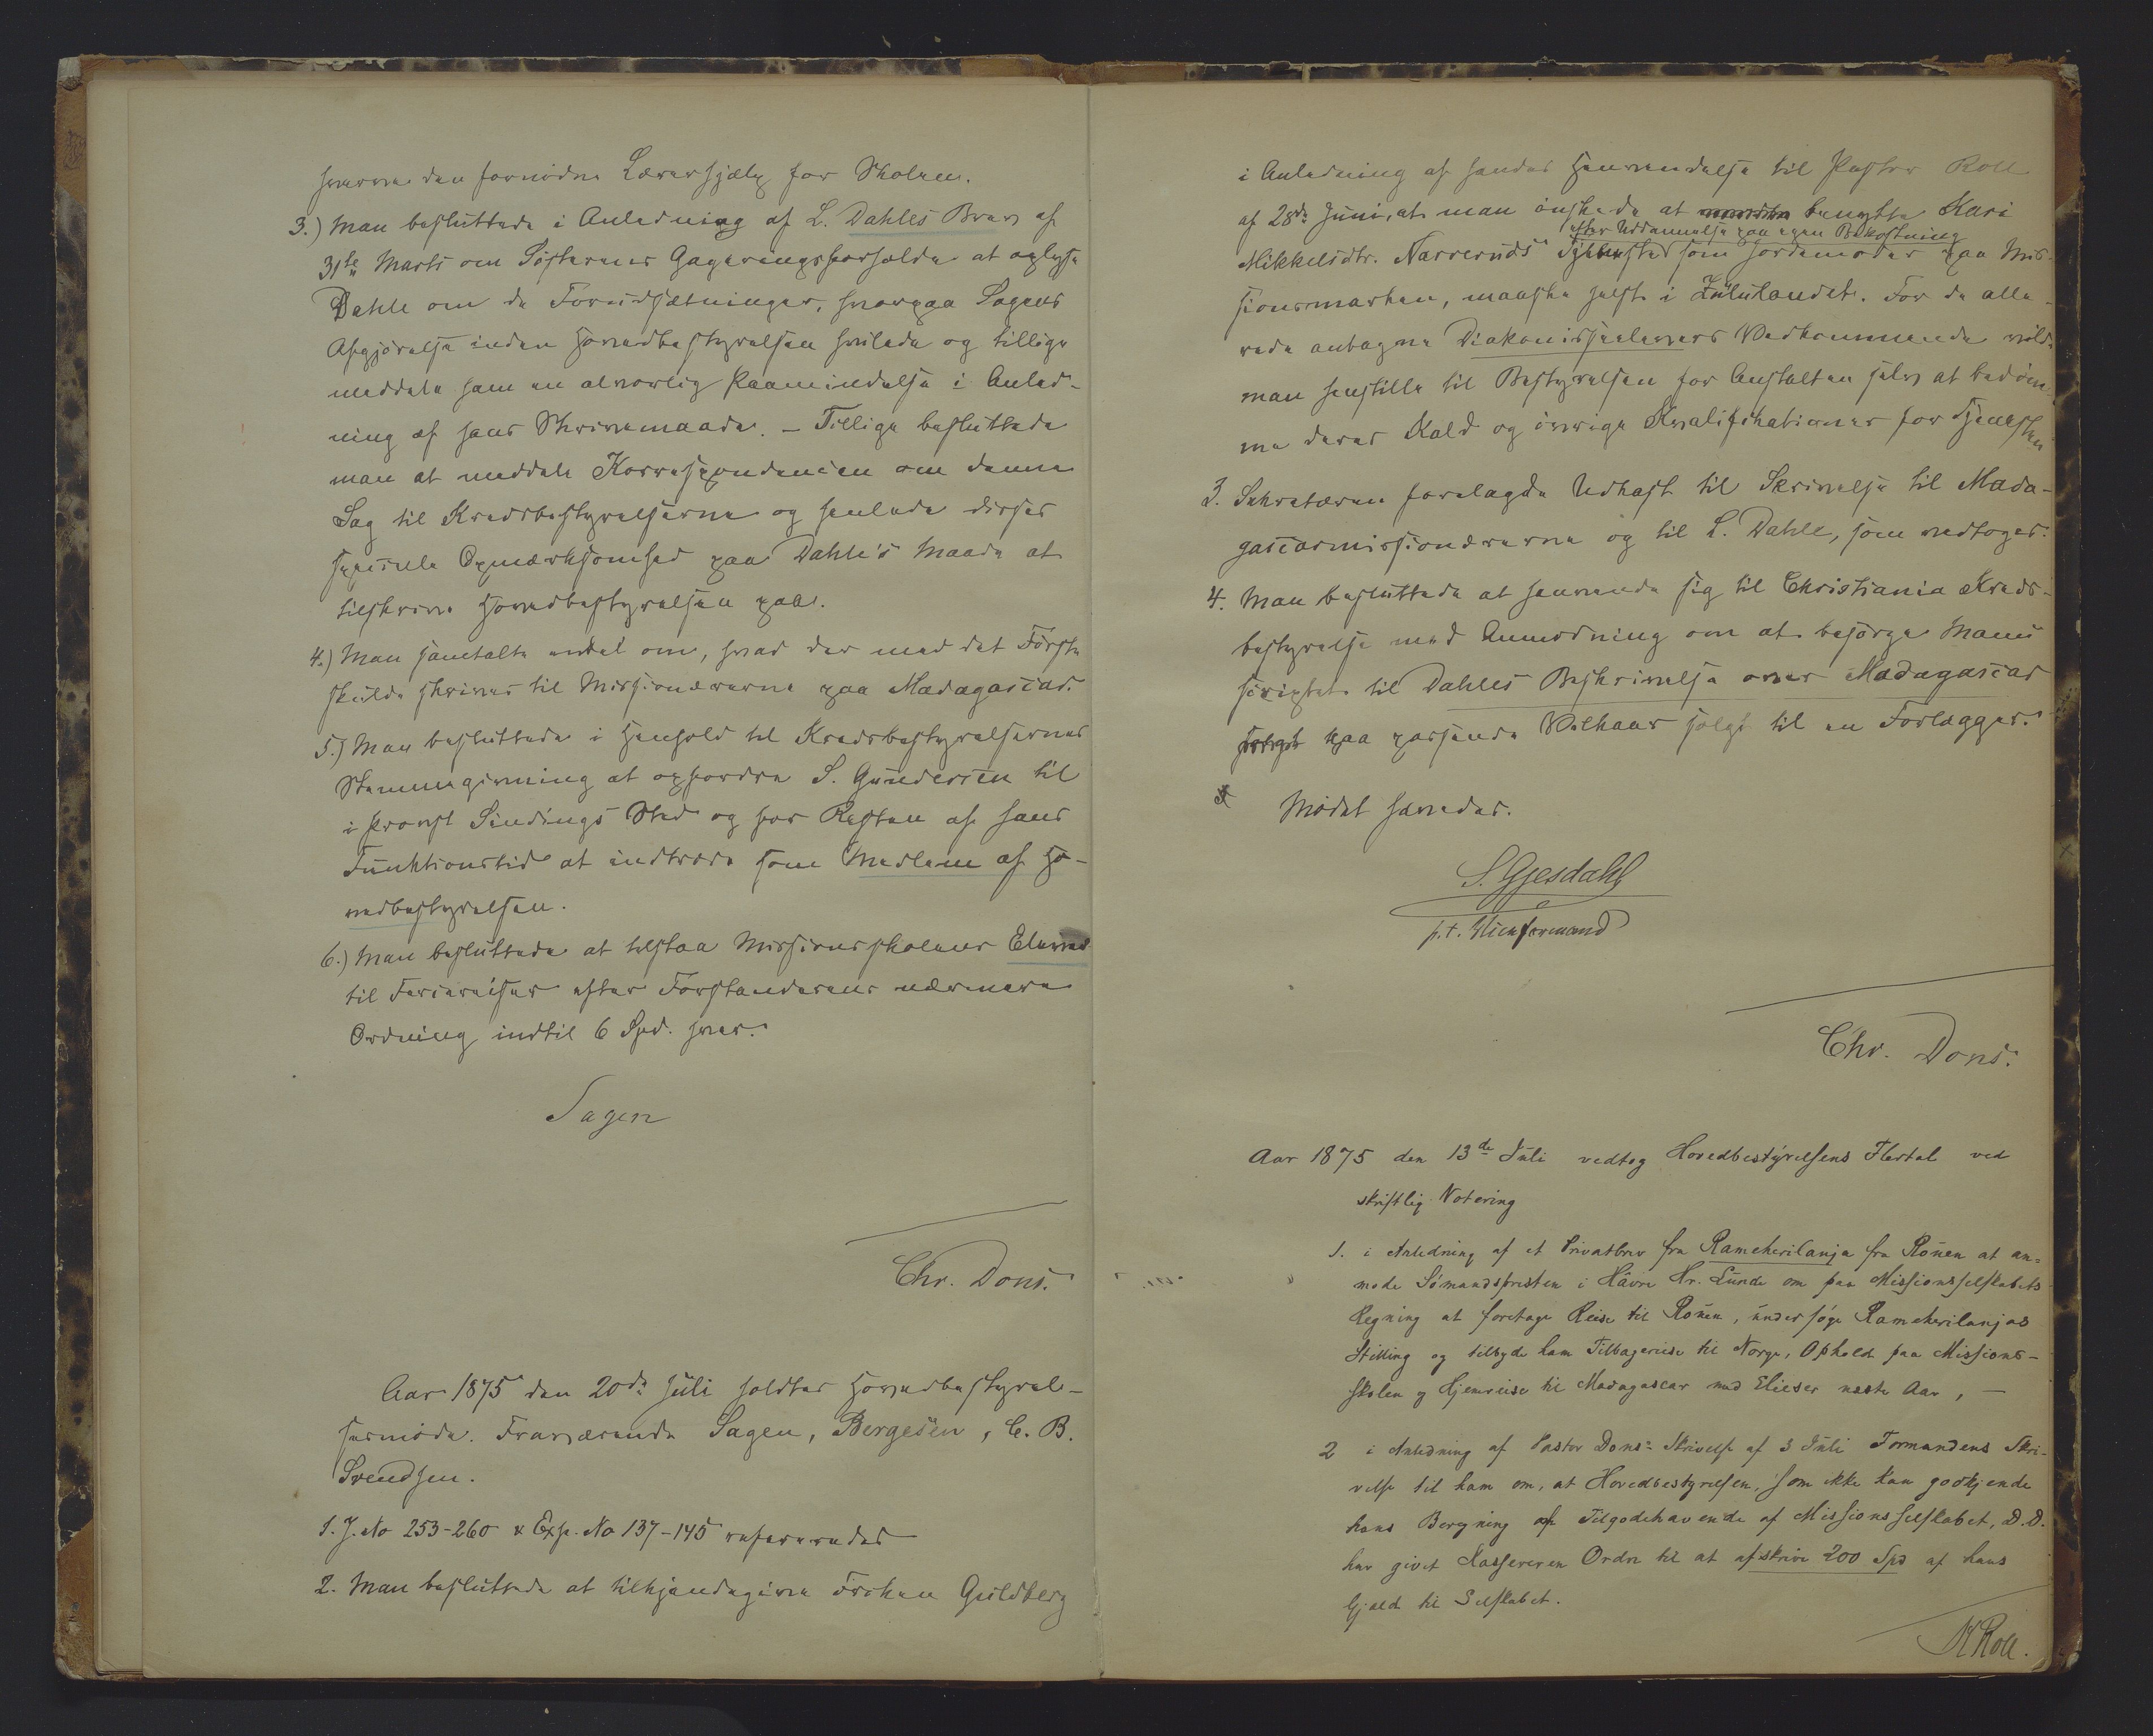 hverve den fornødne Lærerhjælp for Skolen.
3.) Man besluttede i Anledning af L. Dahles Brev af
31te Marts om Søstrenes Gageringsforholde at oplyse
Dahle om de Forudsætninger, hvorpaa Sagens
Afgjørelse inden Hovedbestyrelsen hvilede og tillige
meddele ham en alvorlig Paamindelse i Anled-
ning af hans Skrivemaade. – Tillige besluttede
man at meddele Korrespondencen om denne
Sag til Kredsbestyrelserne og henlede disses
specielle Opmærksomhed paa Dahle's Maade at
tilskrive Hovedbestyrelsen paa.
4.) Man samtalte endel om, hvad der med det Første
skulde skrives til Missionærerne paa Madagascar.
5.) Man besluttede i Henhold til Kredsbestyrelsernes
Stemmegivning at opfordre S. Gundersen til
i Provst Sindings Sted og for Resten af hans
Funktionstid at indtræde som Medlem af Ho-
vedbestyrelsen.
6.) Man besluttede at tilstaa Missionsskolens Elever
til Feriereiser efter Forstanderens nærmere
Ordning indtil 6 Spd. hver.
Sagen
Chr. Dons.
Aar 1875 den 20de Juli holdtes Hovedbestyrel-
sesmøde. Fraværende Sagen, Bergesen, C. B.
Svendsen.
1. J. No 253-260 & Exp. No 137-145 refereredes
2. Man besluttede at tilkjendegive Frøken Guldberg
i Anledning af hendes Henvendelse til Pastor Roll
af 28de Juni, at man ønskede at benytte Kari
efter Uddannelse paa egen Bekostning
Mikkelsdtr. Narveruds Tjeneste som Jordemoder paa Mis-
sionsmarken, maaske helst i Zululandet. For de alle-
rede antagne Diakonisseelevers Vedkommende vilde
man henstille til Bestyrelsen for Anstalten selv at bedøm-
me deres Kald og øvrige Kvalifikationer for Tjenesten
3. Sekretæren forelagde Udkast til Skrivelse til Mada-
gascarmissionærerne og til L. Dahle, som vedtoges.
4. Man besluttede at henvende sig til Christiania Kreds-
bestyrelse med Anmodning om at besørge Manu-
scriptet til Dahles Beskrivelse over Madagascar
paa passende Vilkaar solgt til en Forlægger.
Mødet hævedes.
S. Gjesdahl
p.t. Viceformand
Chr. Dons.
Aar 1875 den 13de Juli vedtog Hovedbestyrelsens Flertal ved
skriftlig Votering
1. i Anledning af et Privatbrev fra Rameherilanja fra Rouen at an-
mode Sømandspresten i Havre Hr. Lunde om paa Missionsselskabets
Regning at foretage Reise til Rouen, undersøge Rameherilanjas
Stilling og tilbyde ham Tilbagereise til Norge, Ophold paa Missions-
skolen og Hjemreise til Madagascar med Elieser næste Aar, —
2 i Anledning af Pastor Dons's Skrivelse af 3 Juli Formandens Skri-
velse til ham om, at Hovedbestyrelsen, som ikke kan godkjende
hans Beregning af Tilgodehavende af Missionsselskabet, D.D.
har givet Kassereren Ordre til at afskrive 200 Spd af hans
Gjæld til Selskabet.
N Roll.